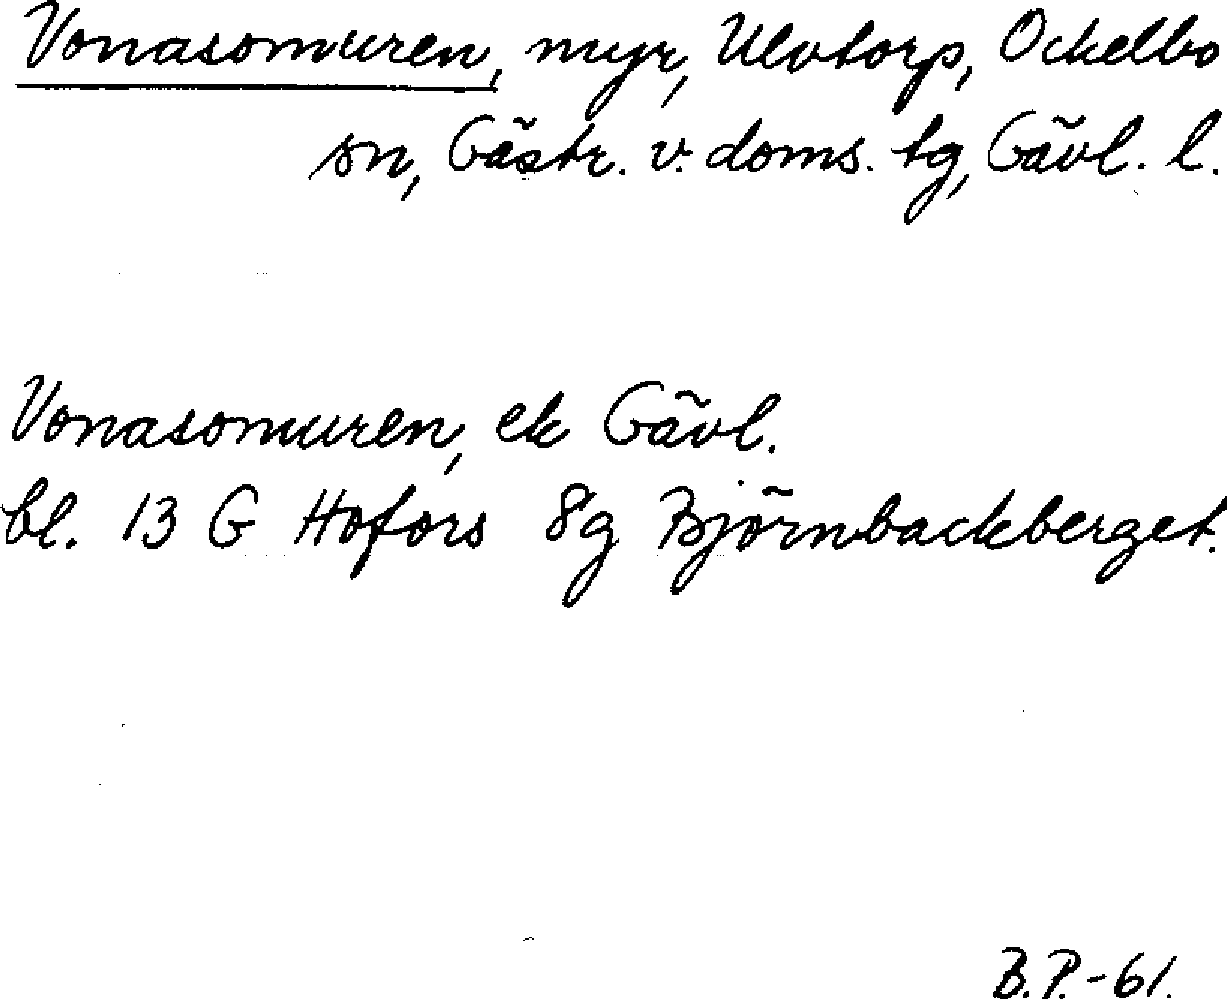 Vonasomuren, myr, Ulvtorp, Ockelbo
sn, Gästr. v. doms. tg, Gävl. l.
Vonasomuren, ek Gävl.
bl. 13 G Hofors 8g Björnbackberget.
B.P.-61.